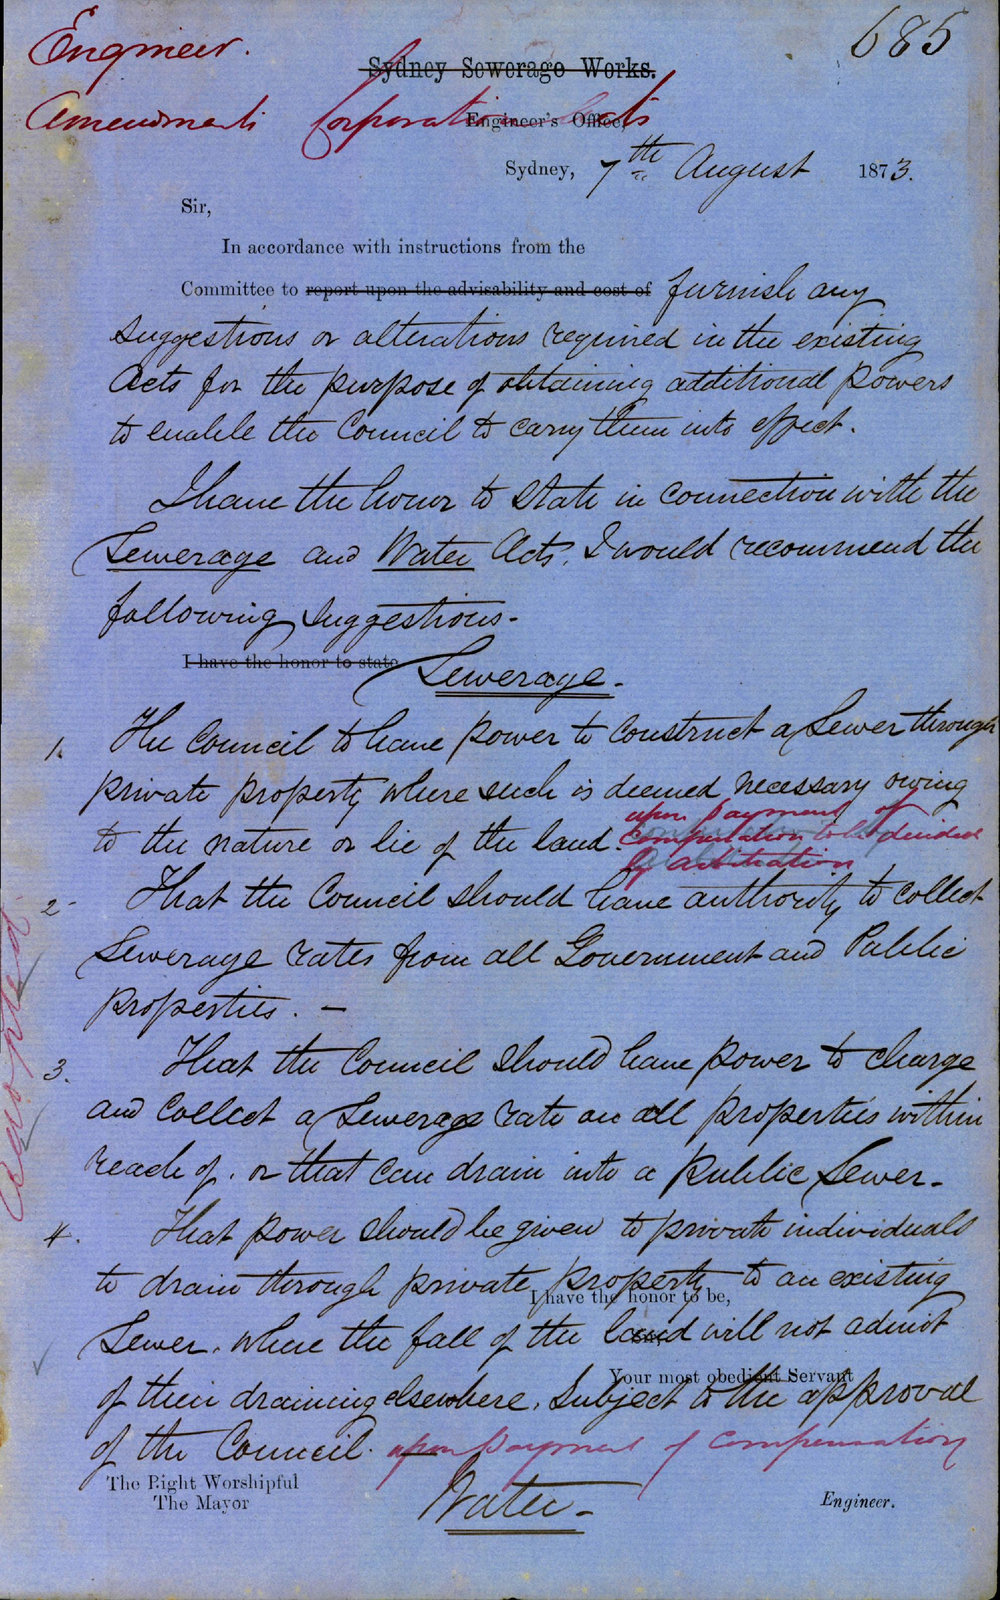 Engineer.
685
Sydney Sewerage Works.
Amendments Corporation Acts
Engineer's Office,
Sydney, 7th August 1873.
Sir,
In accordance with instructions from the
Committee to report upon the advisability and cost of furnish any
suggestions or alterations required in the existing
Acts for the purpose of obtaining additional powers
to enable the Council to carry them into effect.
I have the honor to state in connection with the
Sewerage and Water Acts, I would recommend the
following suggestions.-
I have the honor to state
Sewerage.-
1. The Council to have power to construct a Sewer through
private property where such is deemed necessary owing
to the nature or lie of the land. upon payment of
compensation to be decided
by arbitration
2- That the Council should have authority to collect
Sewerage rates from all Government and Public
properties. -
3. That the Council should have power to charge
and collect a Sewerage rate on all properties within
reach of, or that can drain into a public Sewer.-
adopted.
4. That power should be given to private individuals
to drain through private property to an existing
I have the honor to be,
Sewer, where the fall of the land will not admit
Your most obedient Servant
of their draining elsewhere, Subject to the approval
of the Council. upon payment of compensation
The Right Worshipful
The Mayor
Water.-
Engineer.